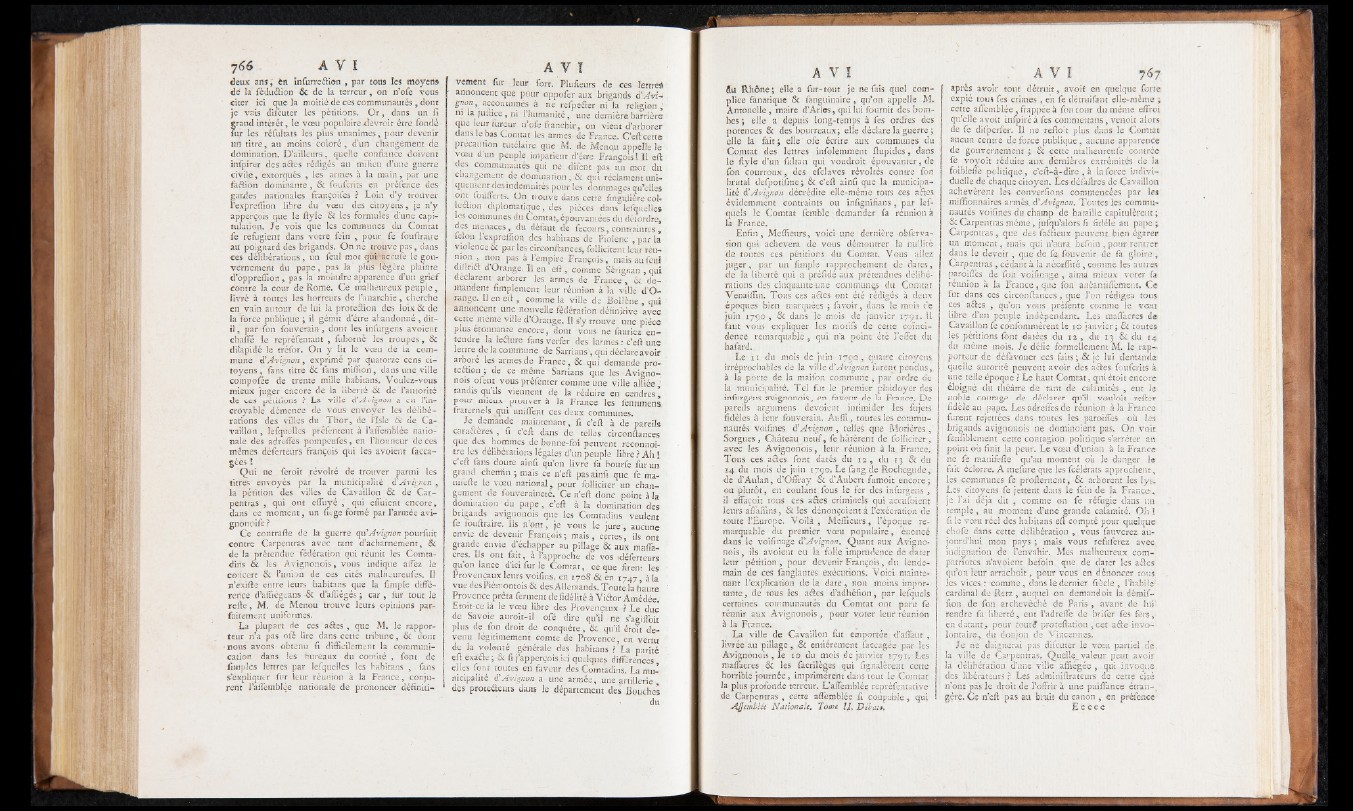 766 A V I
deux ans, en insurrection, par tous les moyens
de la séduction & de la terreur, on n'ose vous
citer ici que la moitié de ces communautés, dont
je vais discuter les pétitions. Or, dans un si
grand intérêt, le vœu populaire devroit être fondé
sur les résultats les plus unanimes, pour devenir
un titre, au moins coloré, d'un changement de
domination. D'ailleurs, quelle confiance doivent
inspirer des actes rédigés au milieu d'une guerre
civile, extorqués, les armes à la main, par une
faction dominante, & souscrits en présence des
gardes nationales françoises ? Loin d'y trouver
l'expression libre du vœu des citoyens, je n'y
apperçois que le style & les formules d'une capi-
tulation. Je vois que les communes du Comtat
se réfugient dans votre sein, pour se soustraire
au poignard des brigands. On ne trouve pas, dans
ces délibérations, un seul mot qui accuse le gou-
vernement du pape, pas la plus légère plainte
d'oppression, pas la moindre apparence d'un grief
contre la cour de Rome. Ce malheureux peuple,
livré à toutes les horreurs de l'anarchie, cherche
en vain autour de lui la protection des loix & de
la force publique ; il gémit d'être abandonné, dit-
il, par son souverain, dont les insurgens avoient
chassé le représentant, suborné les troupes, &
dilapidé le trésor. On y lit le vœu de la com-
mune d'Avignon, exprimé par quatorze cens ci-
toyens, sans titre & sans mission, dans une ville
composée de trente mille habitans. Voulez-vous
mieux juger encore de la liberté & de l'autorité
de ces pétitions ? La ville d'Avignon a eu l'in-
croyable démence de vous envoyer les délibé-
rations des villes du Thor, de l'Isle & de Ca-
vaillon, lesquelles présentent à l'assemblée natio-
nale des adresses pompeuses, en l'honneur de ces
mêmes déserteurs françois qui les avoient sacca-
gées !
Qui ne seroit révolté de trouver parmi les
titres envoyés par la municipalité d'Avignon,
la pétition des villes de Cavaillon & de Car-
pentras, qui ont essuyé, qui essuient encore,
dans ce moment, un siège formé par l'armée avi-
gnonoise ?
Ce contraste de la guerre qu'Avignon poursuit
contre Carpentras avec tant d'acharnement, &
de la prétendue fédération qui réunit les Comta-
dins & les Avignonois, vous indique assez le
concert & l'union de ces cités malheureuses. Il
n'existe entre leurs habitans que la simple diffé-
rence d'assiégeans & d'assiégés ; car, sur tout le
reste, M. de Menou trouve leurs opinions par-
faitement uniformes.
La plupart de ces actes, que M. le rappor-
teur n'a pas osé lire dans cette tribune, & dont
nous avons obtenu si difficilement la communi-
cation dans les bureaux du comité, sont de
simples lettres par lesquelles les habitans, sans
s'expliquer sur leur réunion à la France, conju-
rent l'assemblée nationale de prononcer définiti-
A V I
vement sur leur sort. Plusieurs de ces lettres
annoncent que pour opposer aux brigands d'Avi-
gnon, accoutumés à ne respecter ni la religion,
ni la justice, ni l'humanité, une dernière barrière
que leur fureur n'ose franchir, on vient d'arborer
dans le bas Comtat les armes de France. C'est cette
précaution tutélaire que M. de Menou appelle le
vœu d'un peuple impatient d'être François ! Il est
des communautés qui ne disent pas un mot du
changement de domination, & qui réclament uni-
quement des indemnités pour les dommages qu'elles
ont soufferts. On trouve dans cette singulière col-
lection diplomatique, des pièces dans lesquelles
les communes du Comtat, épouvantées du désordre,
des menaces, du défaut de secours, contraintes,
selon l'expression des habitans de Piolenc, par la
violence & par les circonstances, sollicitent leur réu-
nion, non pas à l'empire François, mais au seul
district d'Orange. Il en est, comme Sérignan, qui
déclarent arborer les armes de France, & de-
mandent simplement leur réunion à la ville d'O-
range. Il en est, comme la ville de Bollène, qui
annoncent une nouvelle fédération définitive avec
cette même ville d'Orange. Il s'y trouve une pièce
plus étonnante encore, dont vous ne sauriez en-
tendre la lecture sans verser des larmes : c'est une
lettre de la commune de Sarrians, qui déclare avoir
arboré les armes de France, & qui demande pro-
tection ; de ce même Sarrians que les Avigno-
nois osent vous présenter comme une ville alliée,
tandis qu'ils viennent de la réduire en cendres,
pour mieux prouver à la France les sentimens
fraternels qui unissent ces deux communes.
Je demande maintenant, si c'est à de pareils
caractères, si c'est dans de telles circonstances
que des hommes de bonne-foi peuvent reconnoî-
tre les délibérations légales d'un peuple libre ? Ah !
c'est sans doute ainsi qu'on livre sa bourse sur un
grand chemin ; mais ce n'est pas ainsi que se ma-
nifeste le vœu national, pour solliciter un chan-
gement de souveraineté. Ce n'est donc point à la
domination du pape, c'est à la domination des
brigands avignonois que les Comtadins veulent
se soustraire. Ils n'ont, je vous le jure, aucune
envie de devenir François ; mais, certes, ils ont
grande envie d'échapper au pillage & aux massa-
cres. Ils ont fait, à l'approche de vos déserteurs
qu'on lance d'ici sur le Comtat, ce que firent les
Provençaux leurs voisins, en 1708 & en 1747, à la
vue des Piémontois & des Allemands. Toute la haute
Provence prêta serment de fidélité à Victor Amédée.
Etoit-ce là le vœu libre des Provençaux ? Le duc
de Savoie auroit-il osé dire qu'il ne s'agissoit
plus de son droit de conquête, & qu'il étoit de-
venu légitimement comte de Provence, en vertu
de la volonté générale des habitans ? La parité
est exacte ; & si j'apperçois ici quelques différences,
elles sont toutes en faveur des Comtadins. La mu-
nicipalité d'Avignon a une armée, une artillerie,
des protecteurs dans le département des Bouches
du
A V I
du Rhône ; elle a sur-tout je ne sais quel com-
plice fanatique & sanguinaire, qu'on appelle M.
Antonelle, maire d'Arles, qui lui fournit des bom-
bes ; elle a depuis long-temps à ses ordres des
potences & des bourreaux ; elle déclare la guerre ;
elle la fait ; elle ose écrire aux communes du
Comtat des lettres insolemment stupides, dans
le style d'un sultan qui voudroit épouvanter, de
son courroux, des esclaves révoltés contre son
brutal despotisme ; & c'est ainsi que la municipa-
lité d'Avignon décrédite elle-même tous ces actes
évidemment contraints ou insignifians, par les-
quels le Comtat semble demander sa réunion à
la France.
Enfin, Messieurs, voici une dernière observa-
tion qui achevera de vous démontrer la nullité
de toutes ces pétitions du Comtat. Vous allez
juger, par un simple rapprochement de dates,
de la liberté qui a présidé aux prétendues délibé-
rations des cinquante-une communes du Comtat
Venaissin. Tous ces actes ont été rédigés à deux
époques bien marquées ; savoir, dans le mois de
juin 1790, & dans le mois de janvier 1791. Il
faut vous expliquer les motifs de cette coïnci-
dence remarquable, qui n'a point été l'effet du
hasard.
Le 11 du mois de juin 1790, quatre citoyens
irréprochables de la ville d'Avignon furent pendus,
à la porte de la maison commune, par ordre de
la municipalité. Tel fut le premier plaidoyer des
insurgens avignonois, en faveur de la France. De
pareils argumens devoient intimider les sujets
fidèles à leur souverain. Aussi, toutes les commu-
nautés voisines d'Avignon, telles que Morières,
Sorgues, Château neuf, se hâtèrent de solliciter,
avec les Avignonois, leur réunion à la France.
Tous ces actes sont datés du 12, du 13 & du
14 du mois de juin 1790. Le sang de Rochegude,
de d'Aulan, d'Offray & d'Aubert fumoit encore ;
ou plutôt, en coulant sous le fer des insurgens,
il effaçoit tous ces actes criminels qui accusoient
leurs assassins, & les dénonçoient à l'exécration de
toute l'Europe. Voilà, Messieurs, l'époque re-
marquable du premier vœu populaire, énoncé
dans le voisinage d'Avignon. Quant aux Avigno-
nois, ils avoient eu la folle imprudence de dater
leur pétition, pour devenir François, du lende-
main de ces sanglantes exécutions. Voici mainte-
nant l'explication de la date, non moins impor-
tante, de tous les actes d'adhésion, par lesquels
certaines communautés du Comtat ont paru se
réunir aux Avignonois, pour voter leur réunion
à la France.
La ville de Cavaillon fut emportée d'assaut,
livrée au pillage, & entièrement saccagée par les
Avignonois, le 10 du mois de janvier 1791. Les
massacres & les sacrilèges qui signalèrent cette
horrible journée, imprimèrent dans tout le Comtat
la plus profonde terreur. L'assemblée représentative
de Carpentras, cette assemblée si coupable, qui
Assemblée Nationale. Tome II. Débats.
A V I 767
après avoir tout détruit, avoit en quelque sorte
expié tous ses crimes, en se détruisant elle-même ;
cette assemblée, frappée à son tour du même effroi
qu'elle avoit inspiré à ses commettans, venoit alors
de se disperser. Il ne restoit plus dans le Comtat
aucun centre de force publique, aucune apparence
de gouvernement ; & cette malheureuse contrée
se voyoit réduite aux dernières extrémités de la
foiblesse politique, c'est-à-dire, à la force indivi-
duelle de chaque citoyen. Les désastres de Cavaillon
achevèrent les conversions commencées par les
missionnaires armés d'Avignon. Toutes les commu-
nautés voisines du champ de bataille capitulèrent ;
& Carpentras même, jusqu'alors si fidèle au pape ;
Carpentras, que des factieux peuvent bien égarer
un moment, mais qui n'aura besoin, pour rentrer
dans le devoir, que de se souvenir de sa gloire,
Carpentras, cédant à la nécessité, comme les autres
paroisses de son voisinage, aima mieux voter sa
réunion à la France, que son anéantissement. Ce
fut dans ces circonstances, que l'on rédigea tous
ces actes, qu'on vous présente comme le vœu
libre d'un peuple indépendant. Les massacres de
Cavaillon se consommèrent le 10 janvier ; & toutes
les pétitions sont datées du 12, du 13 & du 14
du même mois. Je défie formellement M. le rap-
porteur de désavouer ces faits ; & je lui demande
quelle autorité peuvent avoir des actes souscrits à
une telle époque ? Le haut Comtat, qui étoit encore
éloigné du théâtre de tant de calamités, eut le
noble courage de déclarer qu'il vouloit rester
fidèle au pape. Les adresses de réunion à la France
furent rejetées dans toutes les paroisses où les
brigands avignonois ne dominoient pas. On voit
sensiblement cette contagion politique s'arrêter au
point où finit la peur. Le vœu d'union à la France
ne se manifeste qu'au moment où le danger le
fait éclorre. A mesure que les scélérats approchent,
les communes se prosternent, & arborent les lys.
Les citoyens se jettent dans le sein de la France,
je l'ai déjà dit, comme on se réfugie dans un
temple, au moment d'une grande calamité. Oh !
si le vœu réel des habitans est compté pour quelque
chose dans cette délibération, vous sauverez au-
jourd'hui mon pays ; mais vous refuserez avec
indignation de l'envahir. Mes malheureux com-
patriotes n'avoient besoin que de dater les actes
qu'on leur arrachoit, pour vous en dénoncer tous
les vices : comme, dans le dernier siècle, l'habile
cardinal de Retz, auquel on demandoit la démis-
sion de son archevêché de Paris, avant de lui
rendre sa liberté, eut l'adresse de briser ses fers,
en datant, pour toute protestation, cet acte invo-
lontaire, du donjon de Vincennes.
Je ne daignerai pas discuter le vœu partiel de
la ville de Carpentras. Quelle valeur peut avoir
la délibération d'une ville assiégée, qui invoque
des libérateurs ? Les administrateurs de cette cité
n'ont pas le droit de l'offrir à une puissance étran-
gère. Ce n'est pas au bruit du canon, en présence
E e e e e